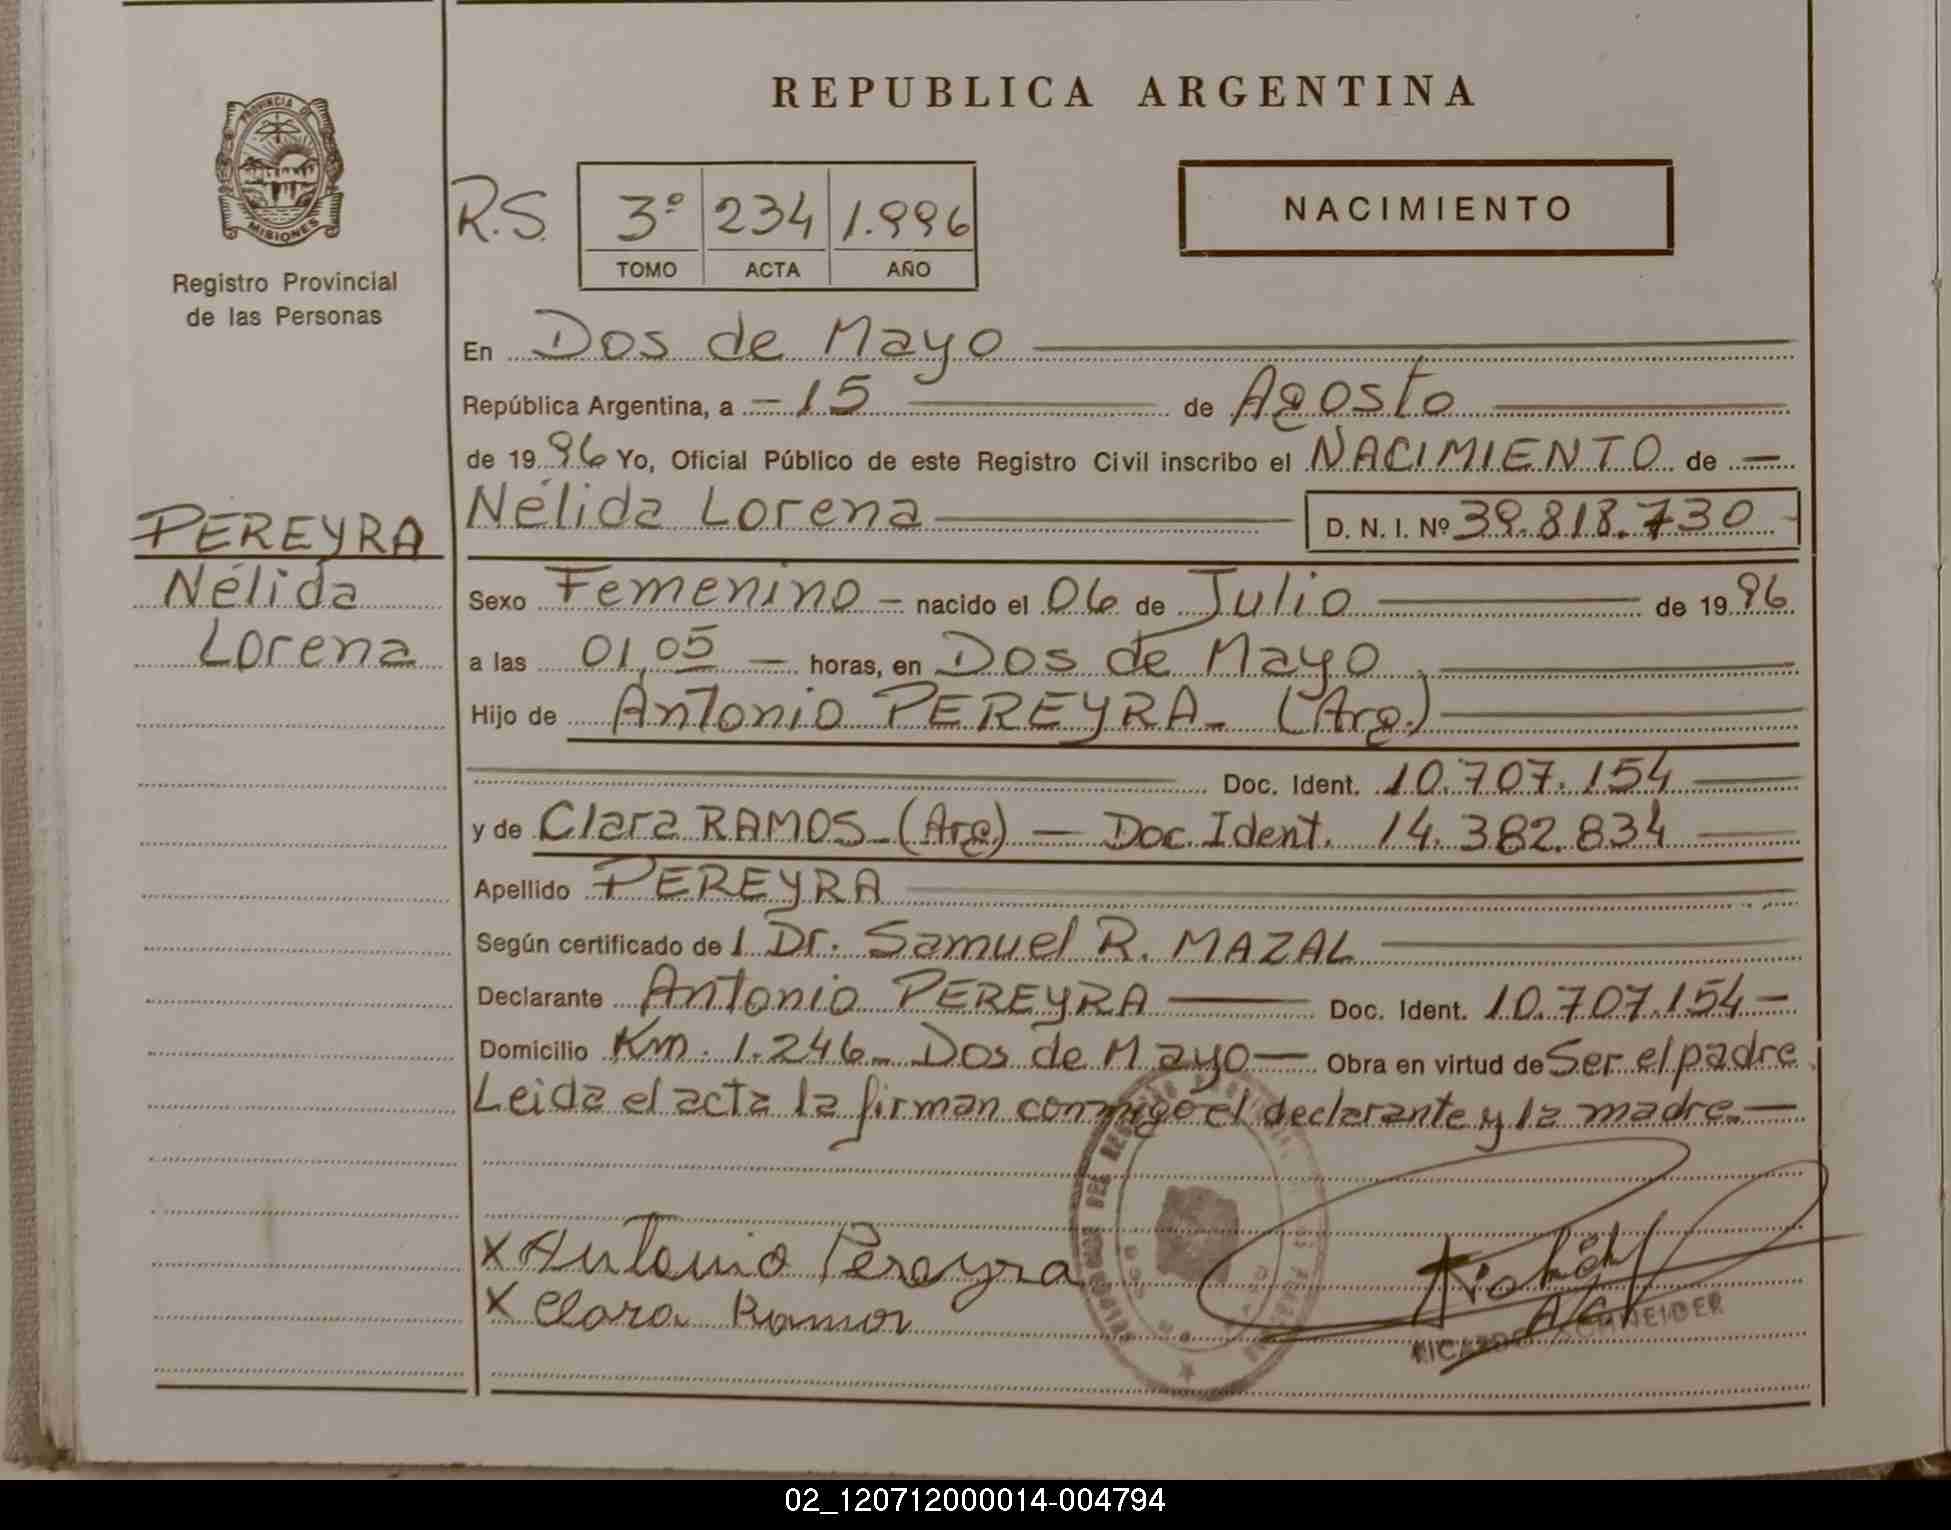 REPUBLICA ARGENTINA
PROVINCIA DE
MISIONES
Registro Provincial
de las Personas
R.S. 3º 234 1.996
TOMO ACTA AÑO
NACIMIENTO
En Dos de Mayo
República Argentina, a 15 de Agosto
de 1996 Yo, Oficial Público de este Registro Civil inscribo el NACIMIENTO de
PEREYRA
Nélida
Lorena
Nélida Lorena D. N. I. Nº 39.818.730
Sexo Femenino - nacido el 06 de Julio de 1996
a las 01,05 horas, en Dos de Mayo
Hijo de Antonio PEREYRA- (Arg.)
Doc. Ident. 10.707.154
y de Clara RAMOS-(Arg) - Doc. Ident. 14.382.834
Apellido PEREYRA
Según certificado de l Dr. Samuel R. MAZAL
Declarante Antonio PEREYRA Doc. Ident. 10.707.154-
Domicilio Km. 1.246- Dos de Mayo- Obra en virtud de Ser el padre
Leida el acta la firman conmigo el declarante y la madre.-
X Antonio Pereyra
X Clara Ramos
SCHNEIDER
02_120712000014-004794